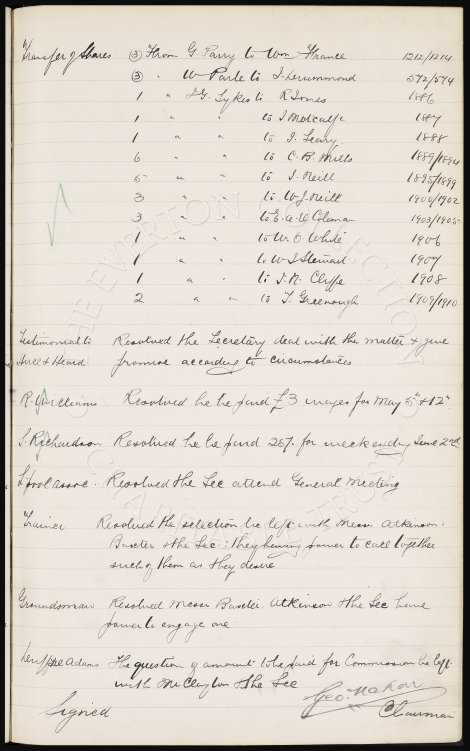 Transfer of Shares (3) From G. Parry to Wm France 1212/1214
(3) " W Parle to J. Drummond 572/574
1 " J G. Sykes to R Jones 1886
1 " " to J Metcalfe 1887
1 " " to J. Leary 1888
6 " " to C. B. Mills 1889/1894
5 " " to J. Neill 1895/1899
3 " " to W J. Neill 1900/1902
3 " " to E. A. W Coleman 1903/1905
1 " " to W. O. White 1906
1 " " to W J. Steward 1907
1 " " to J. N. Cliffe 1908
2 " " to T. Greenough 1909/1910
Testimonial to Resolved the Secretary deal with the matter & give
& Heard promise according to circumstances
R. Williams Resolved he be paid £3 wages for May 5th & 12th
S. Richardson Resolved he be paid 25/. for week ending June 2nd
L'pool assoc. Resolved the Sec attend General Meeting
Trainer Resolved the selection be left with Messrs Atkinson,
Baxter & the Sec: they having power to call together
such of them as they desire
Groundsman Resolved Messrs Baxter, Atkinson & the Sec have
power to engage one
Adams The question of amount to be paid for Commission be left
with Mr Clayton & the Sec
Geo. Mahon
Signed Chairman
THE EVERTON COLLECTION
CHARITABLE TRUST